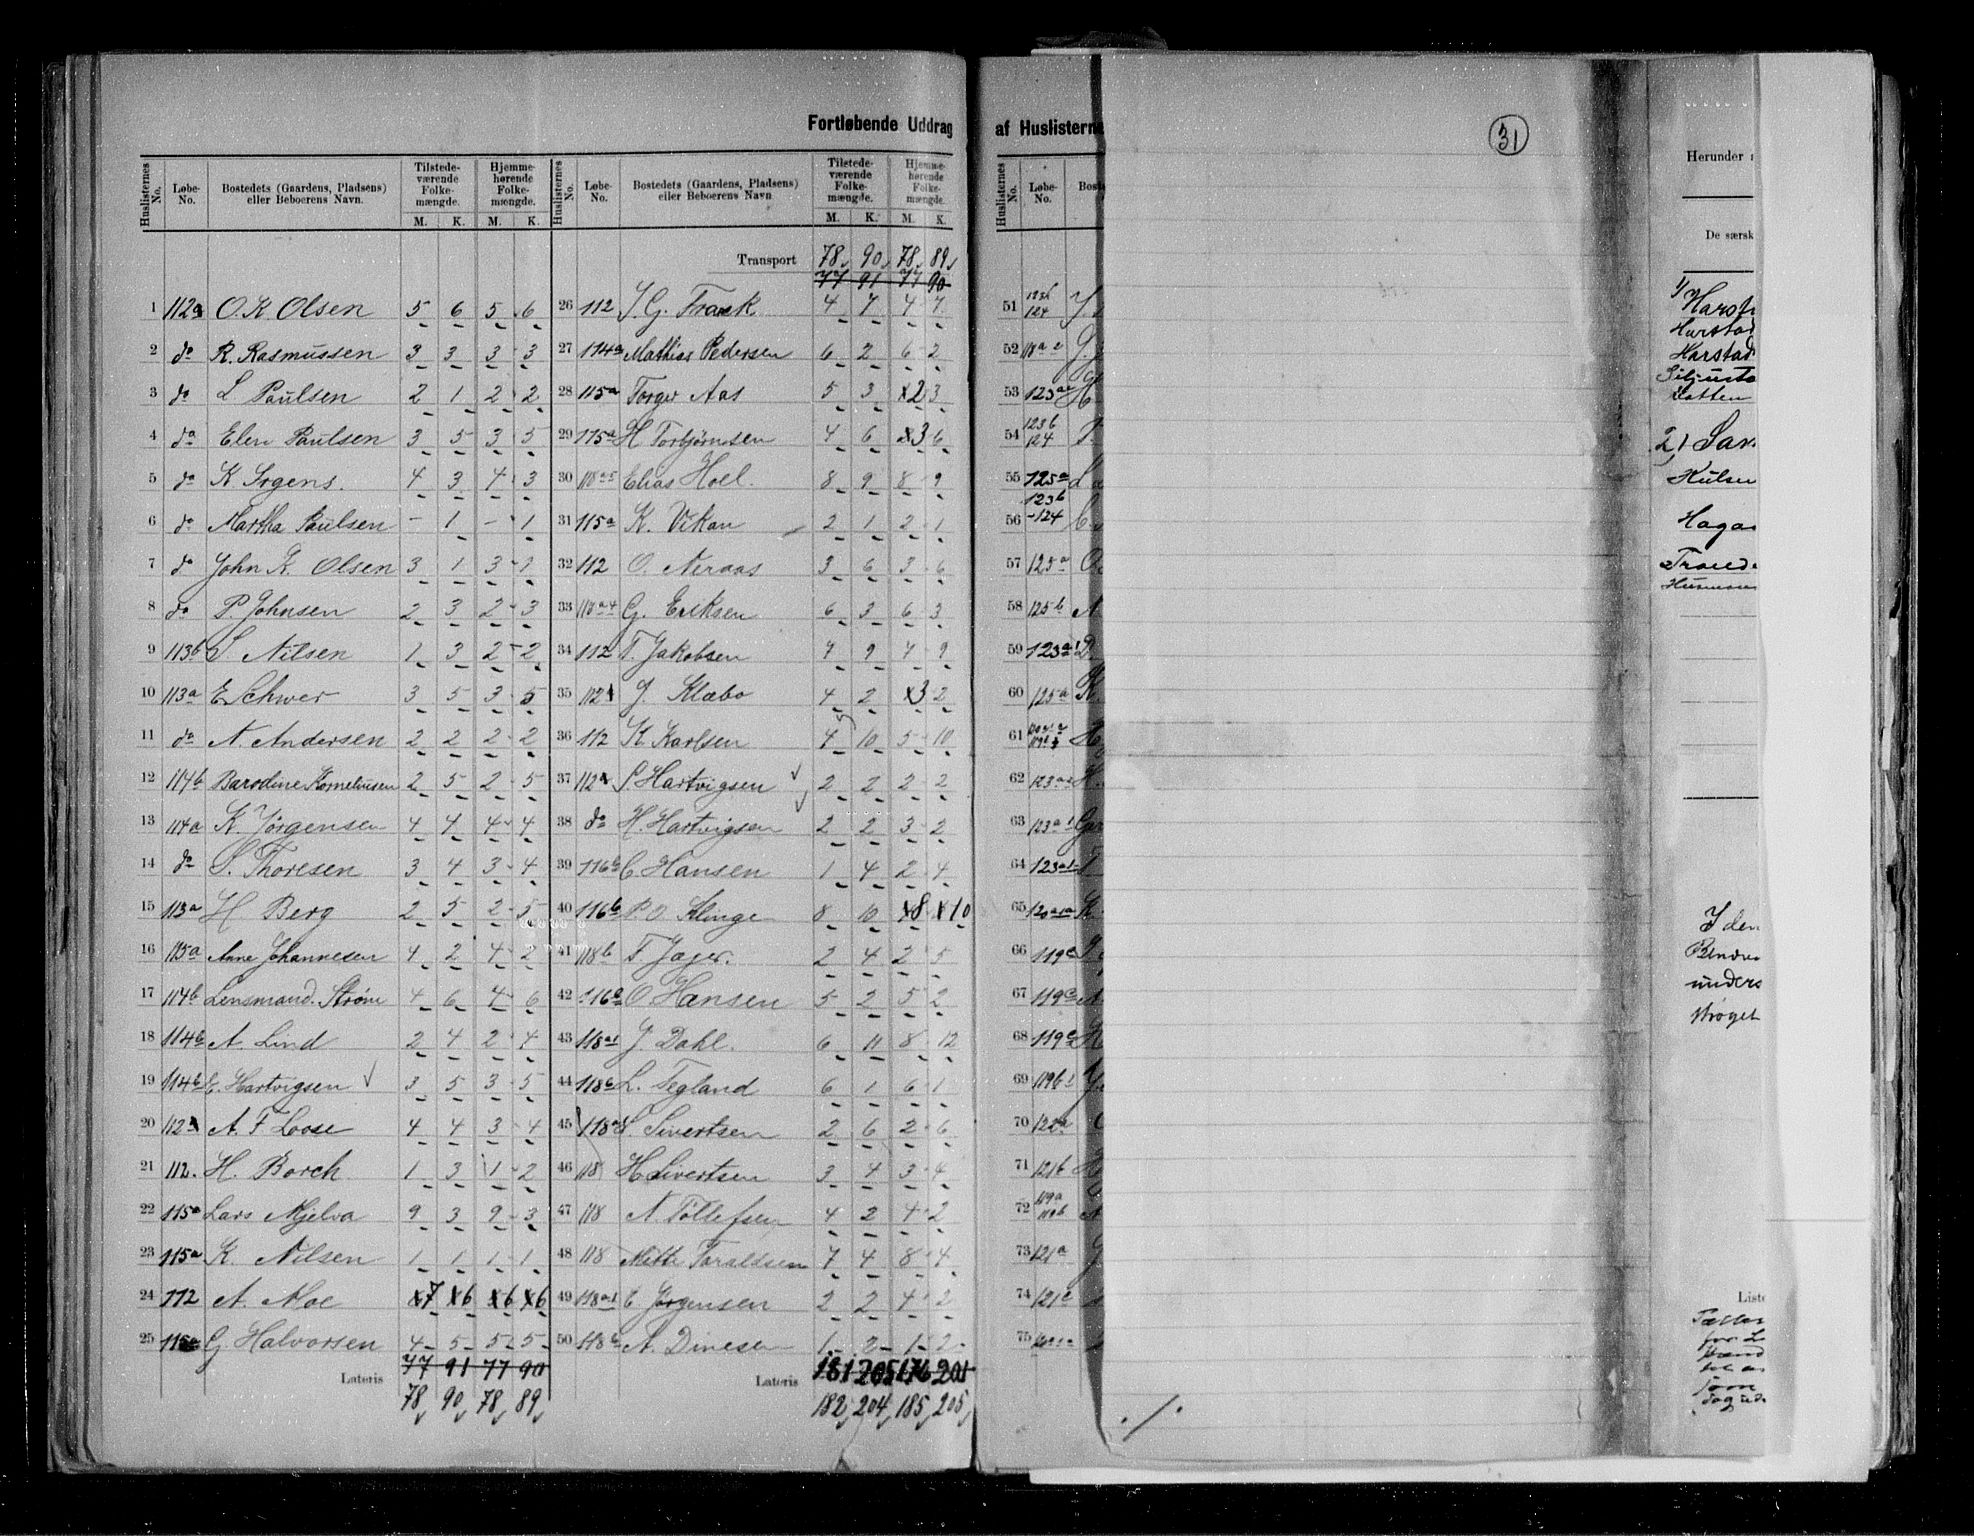 Fortløbende Uddrag
Huslisternes No. Løbe-No. Bostedets (Gaardens, Pladsens) eller Beboerens Navn. Tilstedeværende Folkemængde. M. K. Hjemmehørende Folkemængde. M. K.
1 112a O. K. Olsen 5 6 5 6
2 do R. Rasmussen 3 3 3 3
3 do L Paulsen 2 1 2 2
4 do Elen Paulsen 3 5 3 5
5 do K Irgens. 4 3 4 3
6 do Martha Paulsen - 1 - 1
7 do John K. Olsen 3 1 3 1
8 do P Johnsen 2 3 2 3
9 113b S. Nilsen 1 3 2 2
10 113a E Schwer 3 5 3 5
11 do N. Andersen 2 2 2 2
12 114b Barodine Korneliusen 2 5 2 5
13 114a K. Jørgensen 4 4 4 4
14 do S. Thoresen 3 4 3 4
15 113a H Berg 2 5 2 5
16 115a Anne Johannesen 4 2 4 2
17 114b Lensmand. Strøm 4 6 4 6
18 114b A. Lind 2 4 2 4
19 114b E. Hartvigsen 3 5 3 5
20 112 A. F Loose 4 4 3 4
21 112. H. Borch 1 3 1 2
22 115a Lars Mjelva 9 3 9 3
23 115a K. Nilsen 1 1 1 1
24 112 A. Moe 7 6 6 6
25 115a G Halvorsen 4 5 5 5
77 91 77 90
Lateris
78 90 78 89
Huslisternes No. Løbe-No. Bostedets (Gaardens, Pladsens) eller Beboerens Navn Tilstedeværende Folkemængde. M. K. Hjemmehørende Folkemængde. M. K.
Transport 78 90 78 89
77 91 77 90
26 112 J. G. Frank 4 7 4 7
27 114a Mathias Pedersen 6 2 6 2
28 115a Torger Aas 5 3 2 3
29 115a H Torbjørnsen 4 6 3 6
30 118a5 Elias Hoel. 8 9 8 9
31 115a K. Vikan 2 1 2 1
32 112 O. Neraas 3 6 3 6
33 118a4 G. Eriksen 6 3 6 3
34 112 T. Jakobsen 7 9 7 9
35 112 J. Klæbo 4 2 3 2
36 112 K Karlsen 4 10 5 10
37 112 S Hartvigsen 2 2 2 2
38 do H. Hartvigsen 2 2 3 2
39 116b C Hansen 1 4 2 4
40 116b P. O. Klinge 8 10 8 10
41 118b F. Jager. 2 4 2 5
42 116b O Hansen 5 2 5 2
43 118a1 J. Dahl. 6 11 8 12
44 118b L. Tegland 6 1 6 1
45 118a S. Sivertsen 2 6 2 6
46 118 H Sivertsen 3 4 3 4
47 118 N. Tollefsen 4 2 4 2
48 118 Mette Taraldsen 7 4 8 4
49 118a1 E Jørgensen 2 2 4 2
50 118b A. Dinesen 1 2 1 2
181 205 176 201
Lateris
182 204 185 205
af Huslisterne
Huslisternes No. Løbe-No. Bost
51 123b 124
52 118a2
53 123a
54 123b 124
55 125a
56 123b -124
57 125a
58 125b
59 123a1
60 125a
61
62 123a
63 123a1
64 123a1
65 120a
66 119c
67 119c
68 119c
69 119b1
70 122a
71 121b
72 119a 119b
73 121a
74 121c
75
31
Herunder
De særsk
1)
Harstad
Harstad
2) San
Haga
I den
unders
strøget
Liste